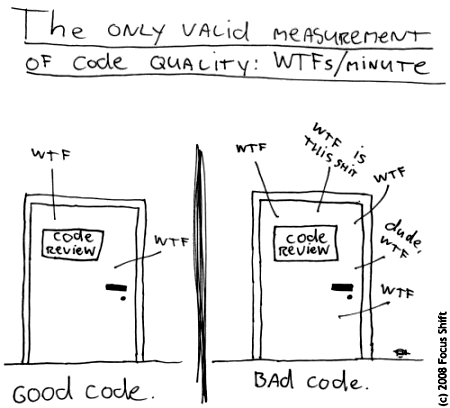 The ONLY VALID MEASUREMENT
OF Code QUALITY: WTFs/MINUTE
WTF
Code
REVIEW
WTF
Good code.
WTF
WTF is
THIS SHIT
WTF
Code
REVIEW
dude,
WTF
WTF
BAd code.
(c) 2008 Focus Shift